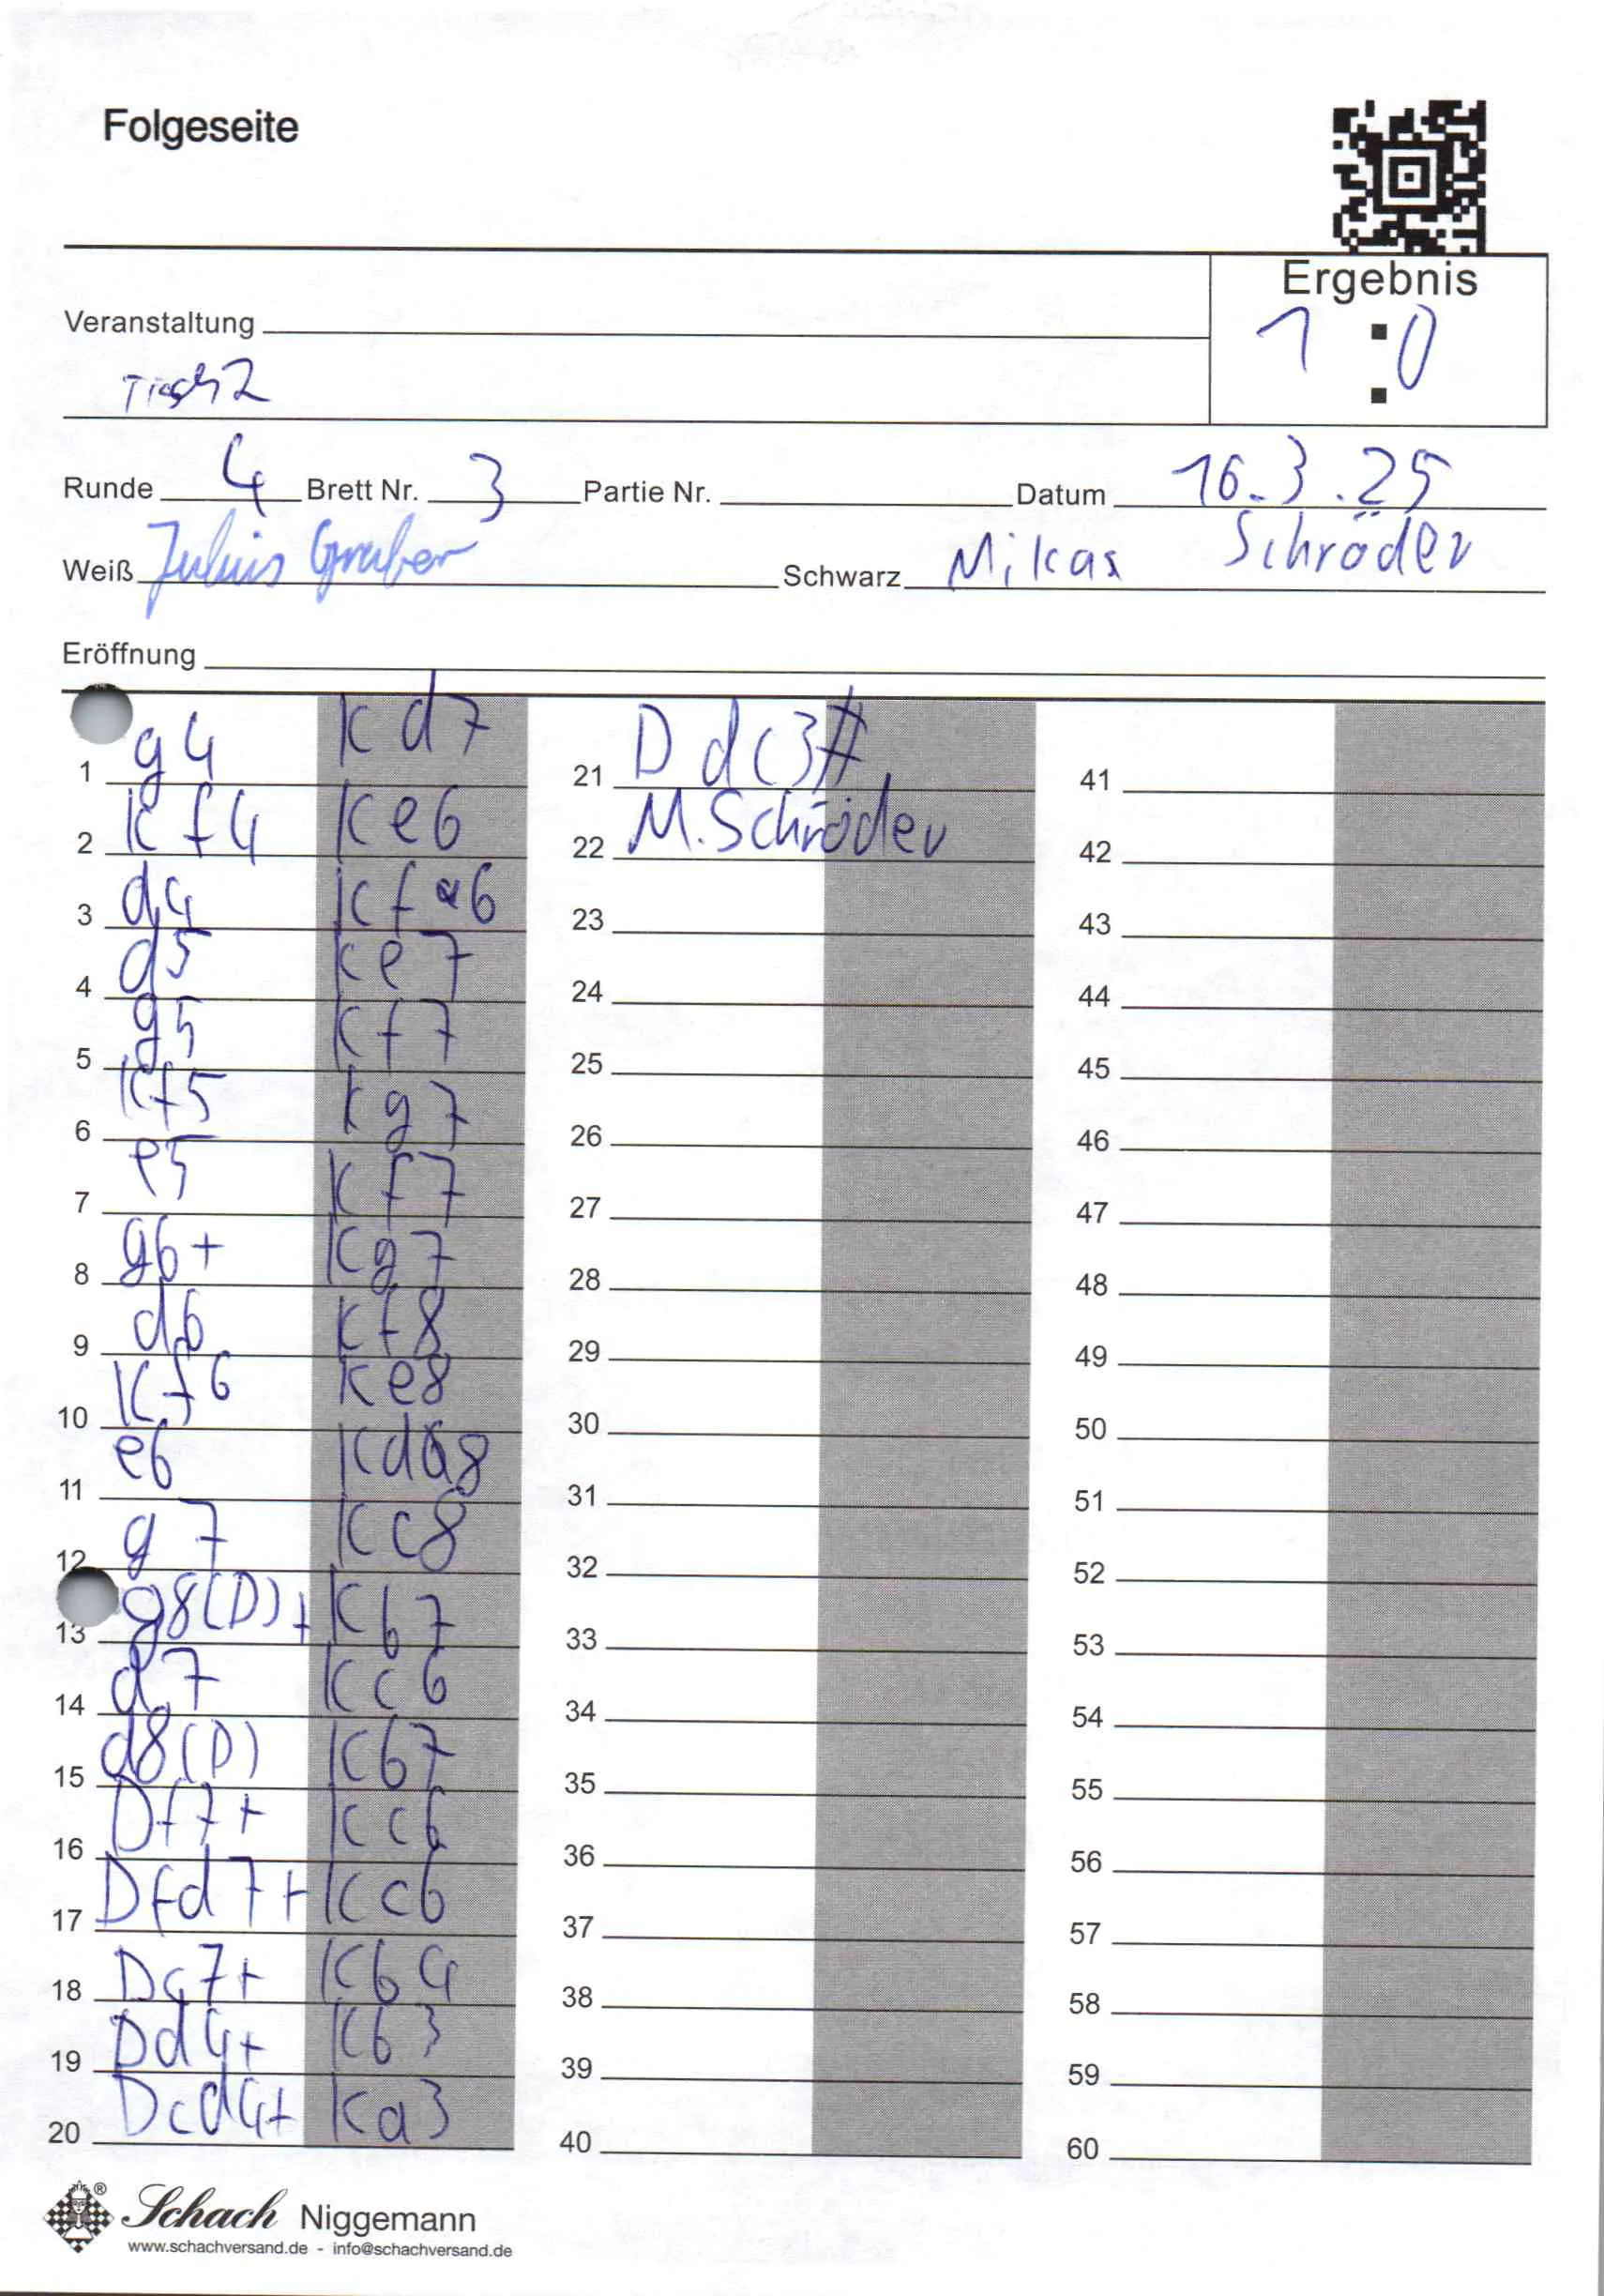 Folgeseite
Ergebnis
1 : 0
Veranstaltung
Tisch 2
Runde 4 Brett Nr. 3 Partie Nr. Datum 16.3.25
Weiß Julius Gruber Schwarz Mikas Schröder
Eröffnung
1 g4 Kd7 21 Ddc3# 41
2 Kf4 Ke6 22 M. Schröder 42
3 d4 Kf6 23 43
4 d5 Ke7 24 44
5 g5 Kf7 25 45
6 Kf5 Kg7 26 46
7 e5 Kf7 27 47
8 g6+ Kg7 28 48
9 d6 Kf8 29 49
10 Kf6 Ke8 30 50
11 e6 Kd8 31 51
12 g7 Kc8 32 52
13 g8(D)+ Kb7 33 53
14 d7 Kc6 34 54
15 d8(D) Kb7 35 55
16 Df7+ Kc6 36 56
17 Dfd7+ Kc6 37 57
18 Dc7+ Kb4 38 58
19 Dd4+ Kb3 39 59
20 Dcd4+ Ka3 40 60
® Schach Niggemann
www.schachversand.de - info@schachversand.de